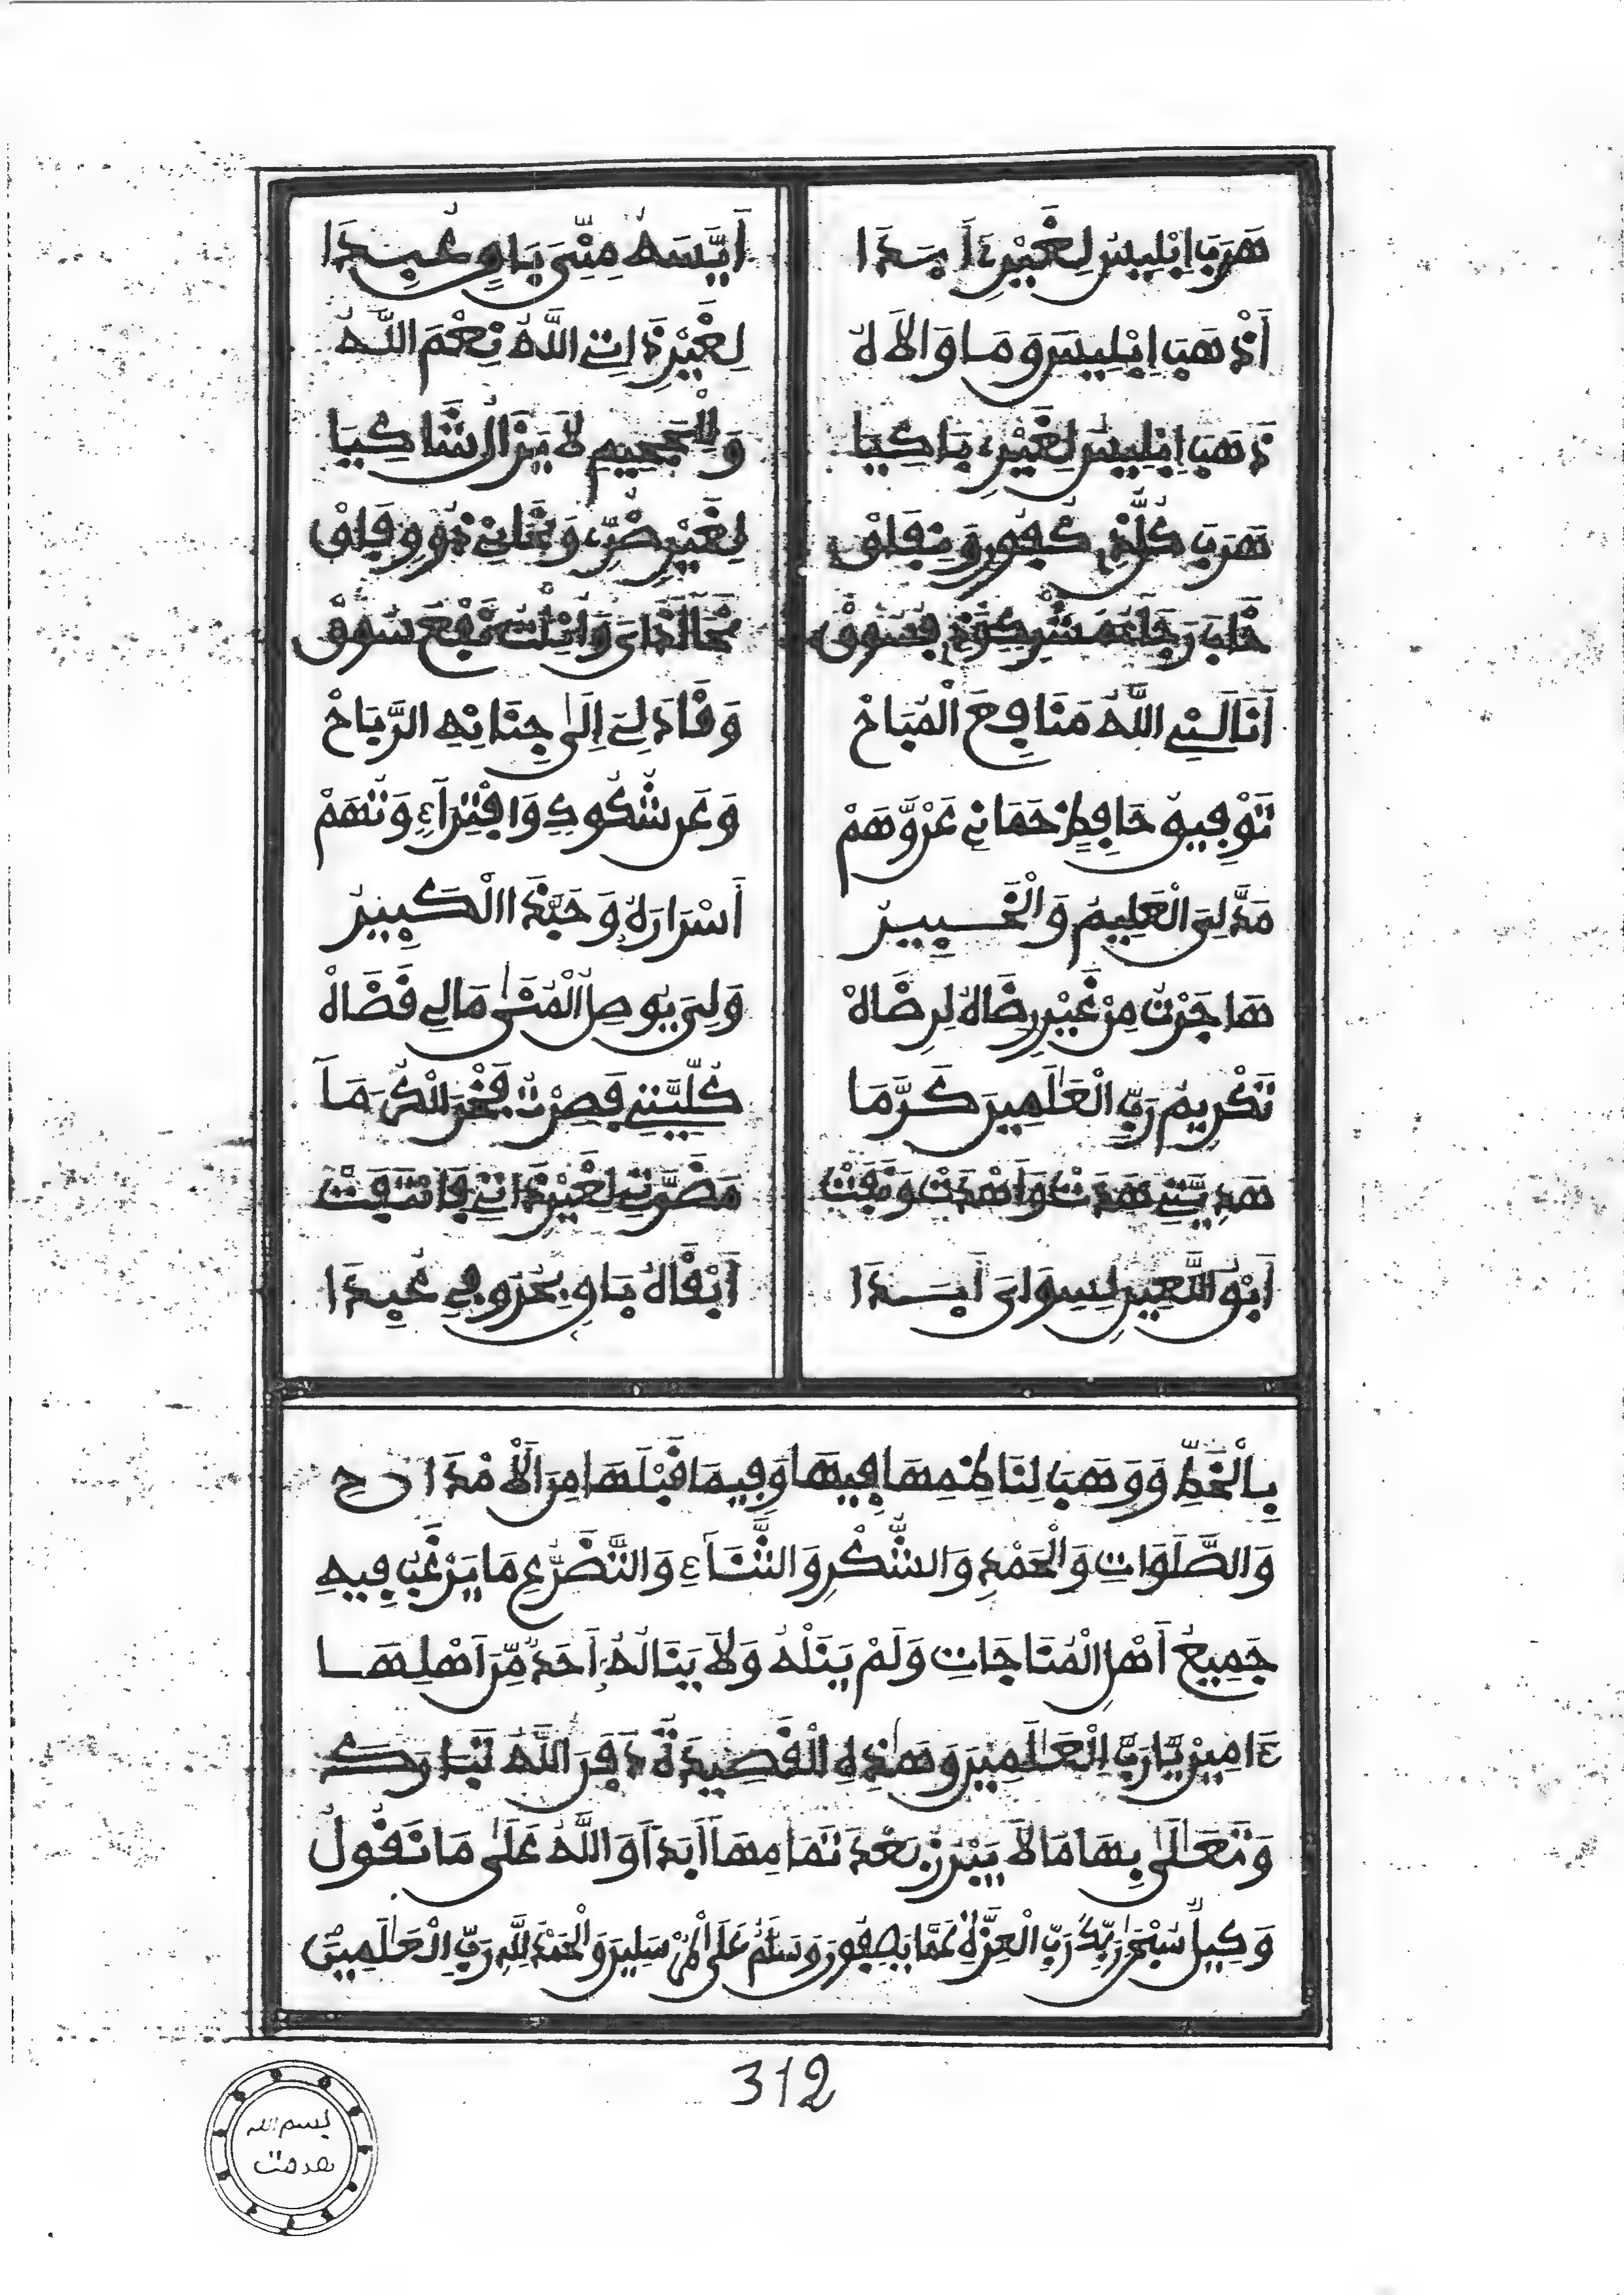 هَرَبَ اِبْلِيسُ لِغَيْرِ أَبَدَا أَيَّسَهُ مِنِّى بَاوٍ عُبِدَا
أَذْهَبَ اِبْلِيسَ وَمَا وَالَاهُ لِغَيْرِ ذَاتِى اللَّهُ نِعْمَ اللَّهُ
ذَهَبَ اِبْلِيسُ لِغَيْرِ بَاكِيَا وَلِلْجَحِيمِ لَا يَزَالُ شَاكِيَا
هَرَبَ كُلُّ ذِى كُفُورٍ وَنِفَاقْ لِغَيْرِ ضُرِّى
خَابَ رَجَا
أَنَالَنِى اللَّهُ مَنَافِعَ الْمُبَاحْ وَقَادَ لِى إِلَى جِنَانِهِ الرَّبَاحْ
تَوْفِيقُ حَافِظٍ حَمَانِى عَنْ وَهَمْ وَعَن شُكُوكٍ وَافْتِرَآءٍ وَتُهَمْ
مَدَّ لِىَ الْعَلِيمُ وَالْخَبِيرُ أَسْرَارَهُ وَحَبَّذَا الْكَبِيرُ
هَاجَرْتُ مِنْ غَيْرِ رِضَاهُ لِرِضَاهْ وَلِى يُوصِلُ الْمُنَى مَالِى قَضَاهْ
تَكْرِيمُ رَبِّ الْعَالَمِينَ كَرَّمَا كُلِّيَّتِى فَصِرْتُ فَخْرَ الْكُرَمَآ
هَدِيَّتِى هَدَتْ وَأَهْدَتْ وَنَفَتْ مَضَرَّتِى لِغَيْرِ ذَاتِى فَانْتَفَتْ
أَبَقَ اللَّعِينُ لِسِوَاىَ أَبَدَا أَبْقَاهُ بَاوٍ بِحُرُوفِى عُبِدَا
بِالْخَطِّ وَوَهَبَ لَنَا نَظْمِهَا فِيهَا وَفِيمَا قَبْلَهَا مِنَ الْأَمْدَاحِ
وَالصَّلَوَاتِ وَالْحَمْدِ وَالشُّكْرِ وَالثَّنَآءِ وَالتَّضَرُّعِ مَا يَرْغَبُ فِيهِ
جَمِيعُ أَهْلِ الْمُنَاجَاتِ وَلَمْ يَنَلْهُ وَلَا يَنَالُهُ أَحَدٌ مِّنْ أَهْلِهَا
ءَامِينَ يَا رَبَّ الْعَالَمِينَ وَهَذِهِ الْقَصِيدَةُ دَفَنَ اللَّهُ تَبَارَكَ
وَتَعَالَى بِهَا مَا لَا يَبْرُزُ بَعْدَ تَمَامِهَا أَبَدًا وَاللَّهُ عَلَى مَا نَقُولُ
وَكِيلٌ سُبْحَانَ رَبِّكَ رَبِّ الْعِزَّةِ عَمَّا يَصِفُونَ وَسَلَامٌ عَلَى الْمُرْسَلِينَ وَالْحَمْدُ لِلَّهِ رَبِّ الْعَالَمِينَ
312
بسم الله